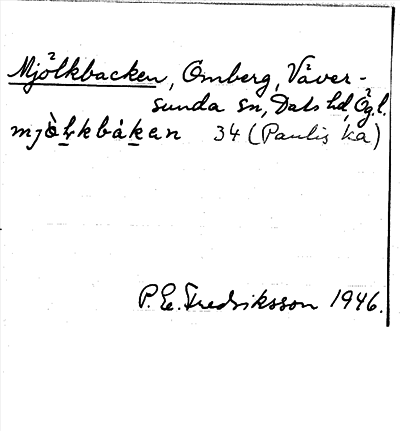 Mjölkbacken, Omberg, Väver-
sunda sn, Dals hd, Ög.l.
mjòlkbákan 34 (Paulis ka)
P. E. Fredriksson 1946.